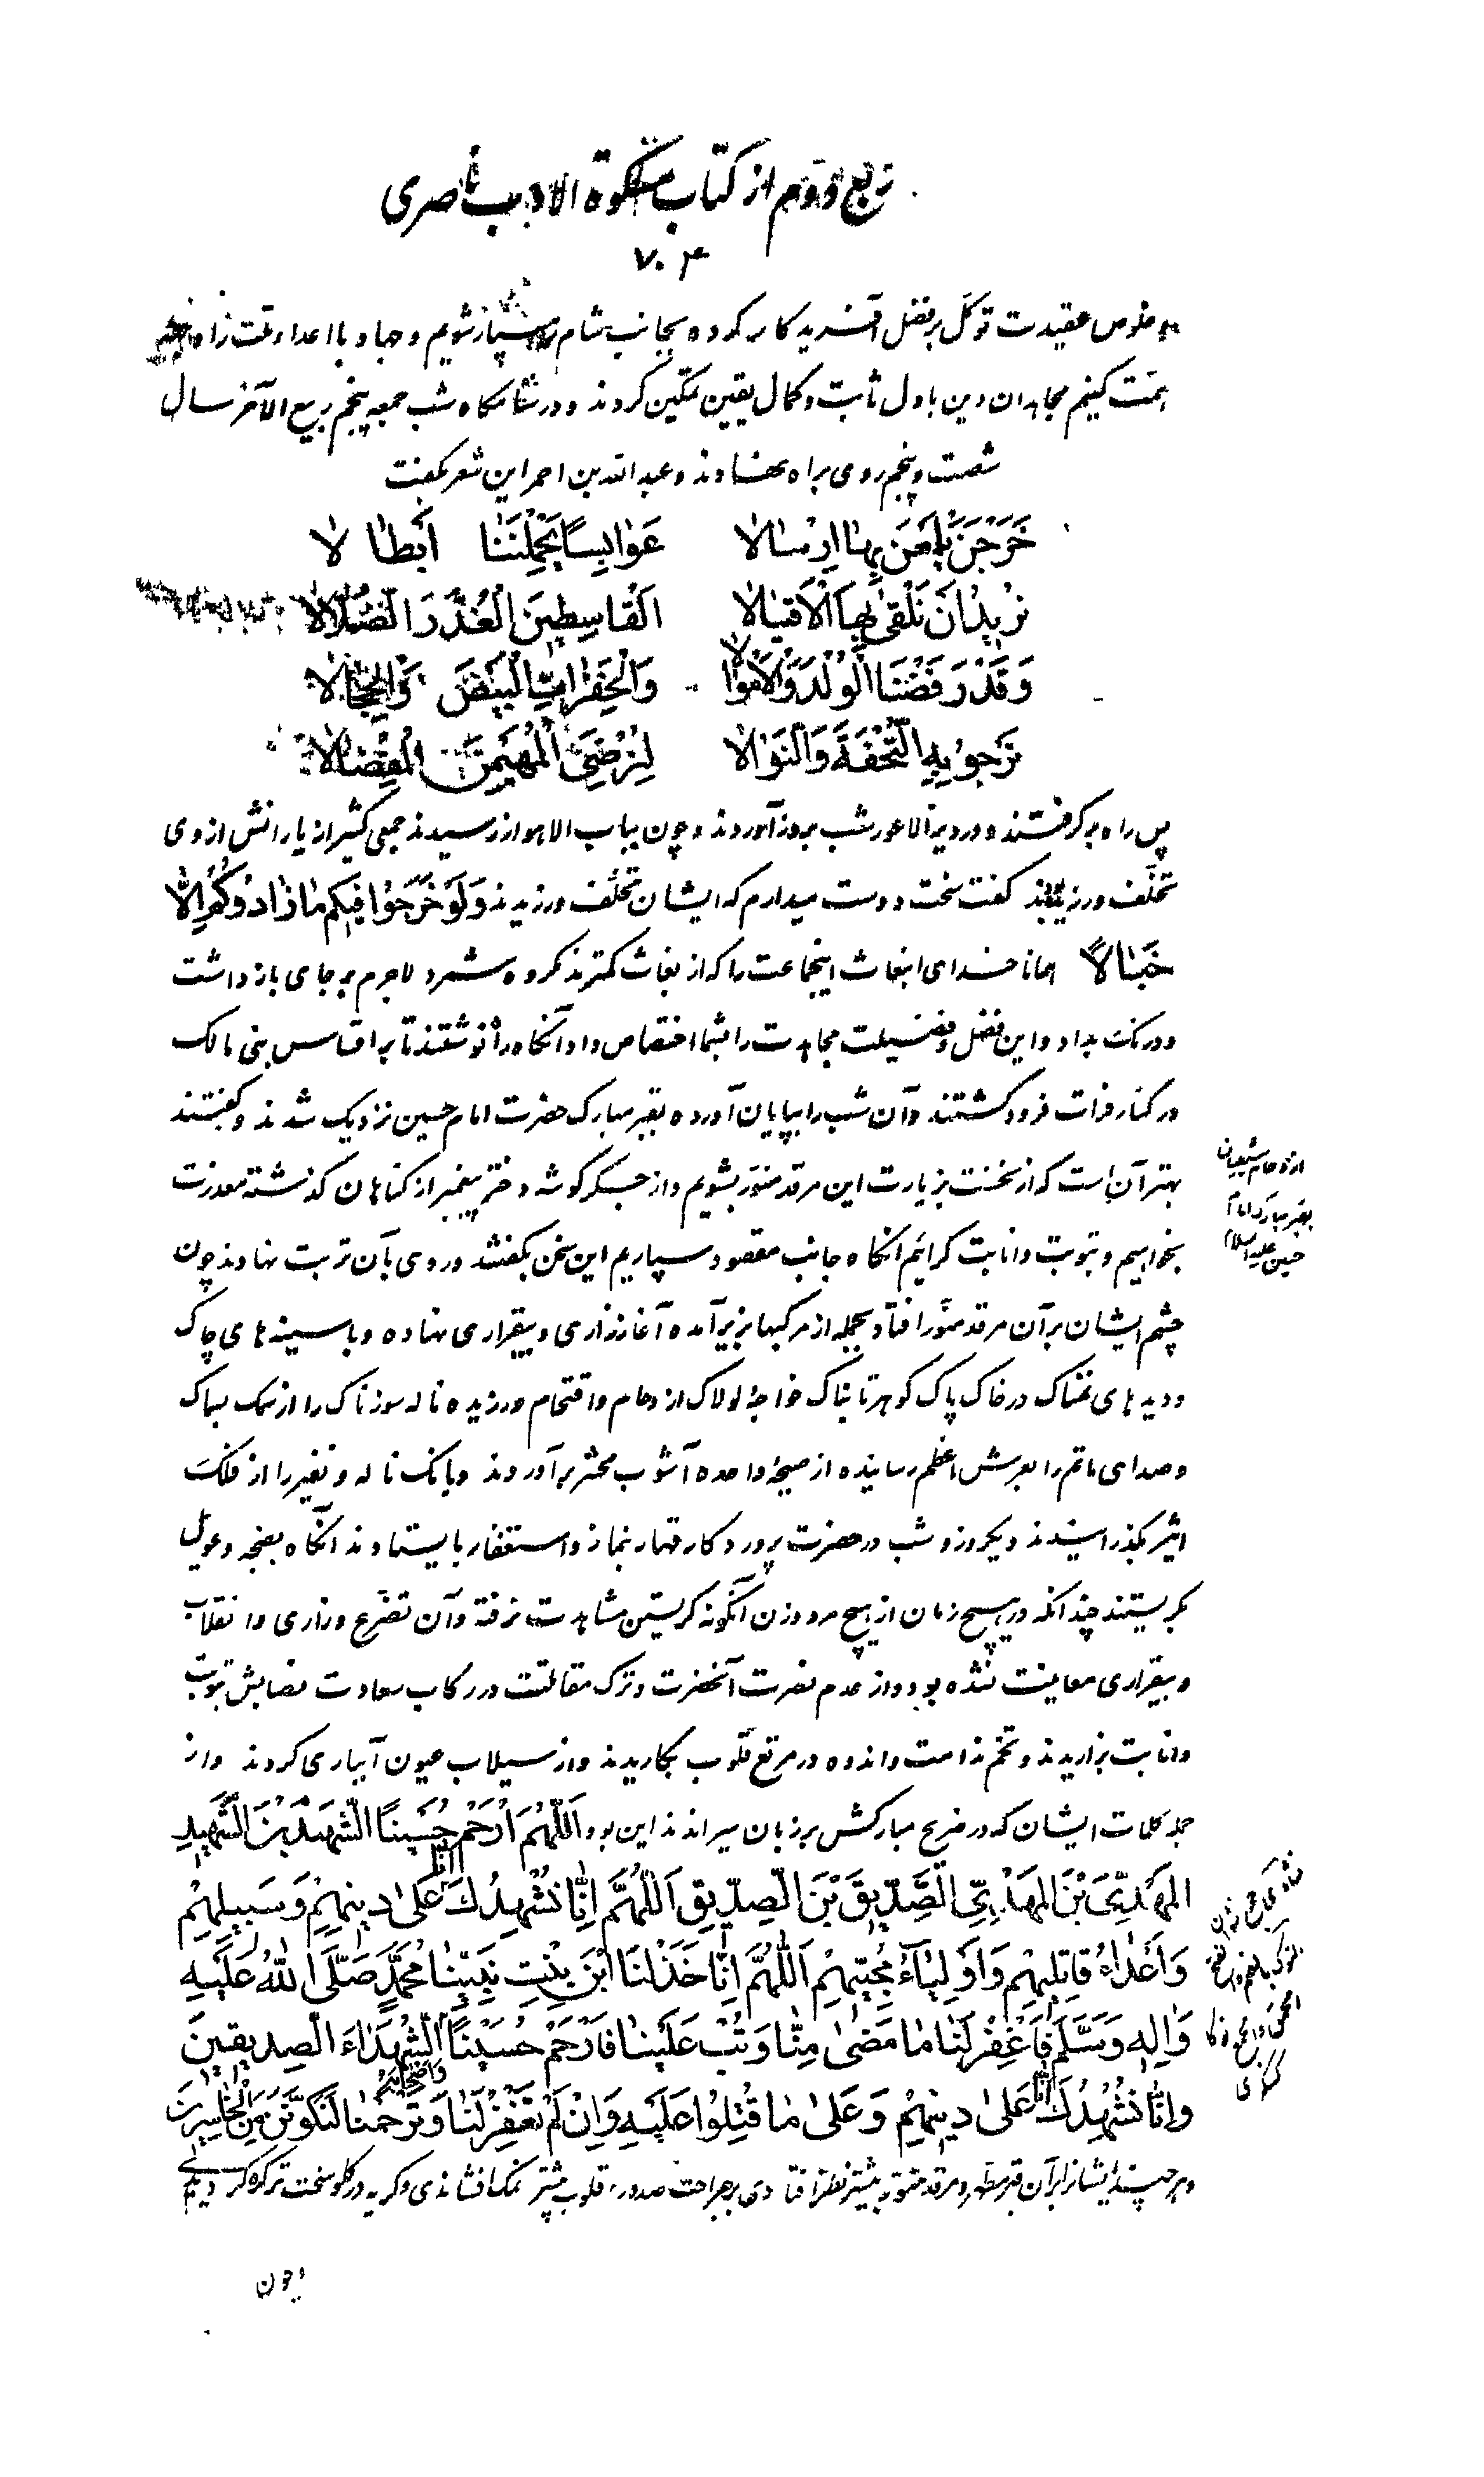 ربع دوم از کتاب مشکوة الادب ناصری
۷۰۴
خلوص عقیدت توکل بر فضل آفریدگار کرده بجانب شام رهسپار شویم و جهاد با اعداء ملت را
همت کنیم مجاهدان دین با دل ثابت و کمال یقین تمکین کردند و در شامگاه شب جمعه پنجم ربیع الآخر سال
شصت و پنجم روی براه نهادند و عبدالله بن احمر این شعر بگفت
خَرَجْنَ يَلْمَعْنَ بِهٰا اِرْسٰالا عَوٰابِسًا يَحْمِلْنَنٰا أَبْطٰالا
نُرِيدُ اَنْ نَلْقىٰ بِهَا الْأَقْيٰالا اَلْقٰاسِطِينَ الْغُدَّرَ الضُّلّٰالا
وَقَدْ رَفَضْنَا الْوُلْدَ وَالْأَمْوٰالا وَالْخَفِرٰاتِ الْبِيضَ وَالْحِجٰالا
نَرْجُو بِهِ التُّحْفَةَ وَالنَّوٰالا لِنُرْضِيَ الْمُهَيْمِنَ الْمِفْضٰالا
پس راه برگرفتند و در دیر الاعور شب بروز آوردند و چون بباب الاهواز رسیدند جمعی کثیر از یارانش از وی
تخلّف ورزیدند گفت سخت دوست میدارم که ایشان تخلّف ورزیدند وَلَوْ خَرَجُوا فِيكُمْ مٰا زٰادُوكُمْ إِلّٰا
خَبٰالًا همانا خدای انبعاث اینجماعت را که از بغاث کمترند مکروه شمرد لاجرم بر جای بازداشت
و درنگ بداد و این فضل و فضیلت مجاهدت را بشما اختصاص داد آنگاه راه نوشتند تا بر اقساس بنی مالک
در کنار فرات فرود گشتند و آن شب را بپایان آورده بقبر مبارک حضرت امام حسین نزدیک شدند و گفتند
بهتر آن است که از نخست بزیارت این مرقد منوّر بشویم و از جگر گوشه دختر پیغمبر از گناهان گذشته معذرت
بخواهیم و بتوبت و انابت گرائیم آنگاه جانب مقصود سپاریم این سخن بگفتند و روی بآن تربت نهادند چون
چشم ایشان بر آن مرقد منوّر افتاد بجمله از مرکبها بزیر آمده آغاز زاری و بیقراری نهاده و با سینه های چاک
و دیده های نمناک در خاک پاک گوهر تابناک خواجۀ لولاک ازدحام و اقتحام ورزیده ناله سوزناک را از سمک بسماک
و صدای ماتم را بعرش اعظم رسانیده از صیحۀ واحده آشوب محشر برآوردند و بانک ناله و نفیر را از فلک
اثیر بگذرانیدند و یکروز و شب در حضرت پروردگار قهار بنماز و استغفار بایستادند آنگاه بضجه و عویل
بگریستند چندانکه در هیچ زمان از هیچ مرد و زن آنگونه گریستن مشاهدت نرفته و آن تضرّع و زاری و انقلاب
و بیقراری معاینت نشده بود و از عدم نصرت آنحضرت و ترک مقاتلت در رکاب سعادت نصابش بتوبت
و انابت بزاریدند و تخم ندامت و اندوه در مرتع قلوب بکاریدند و از سیلاب عیون آبیاری کردند و از
جمله کلمات ایشان که در ضریح مبارکش بر زبان میراندند این بود اَللّٰهُمَّ ارْحَمْ حُسَيْنًا الشَّهِيدَ بْنَ الشَّهِيدِ
الْمَهْدِيَّ بْنَ الْمَهْدِيِّ الصِّدِّيقَ بْنَ الصِّدِّيقِ اَللّٰهُمَّ اِنّٰا نُشْهِدُكَ أَنّٰا عَلىٰ دِينِهِمْ وَسَبِيلِهِمْ
وَأَعْدٰاءُ قٰاتِلِيهِمْ وَاَوْلِيٰآءُ مُحِبِّيهِمْ اَللّٰهُمَّ اِنّٰا خَذَلْنَا ابْنَ بِنْتِ نَبِيِّنٰا مُحَمَّدٍ صَلَّى اللّٰهُ عَلَيْهِ
وَاٰلِهِ وَسَلَّمَ فَاغْفِرْ لَنٰا مٰا مَضىٰ مِنّٰا وَتُبْ عَلَيْنٰا فَارْحَمْ حُسَيْنًا وَأَصْحٰابَهُ الشُّهَدٰاءَ الصِّدِّيقِينَ
وَاِنّٰا نُشْهِدُكَ أَنّٰا عَلىٰ دِينِهِمْ وَعَلىٰ مٰا قُتِلُوا عَلَيْهِ وَاِنْ لَمْ تَغْفِرْ لَنٰا وَتَرْحَمْنٰا لَنَكُونَنَّ مِنَ الْخٰاسِرِينَ
و هر چند ایشانرا بر آن قبر مطهر و مرقد منور بیشتر نظر افتادی بر جراحت صدور و قلوب بیشتر نمک افشاندی و گریه در گلو سخت تر گره گردیدی
و چون
ازدحام شیعیان
بقبر مبارک امام
حسین علیه السلام